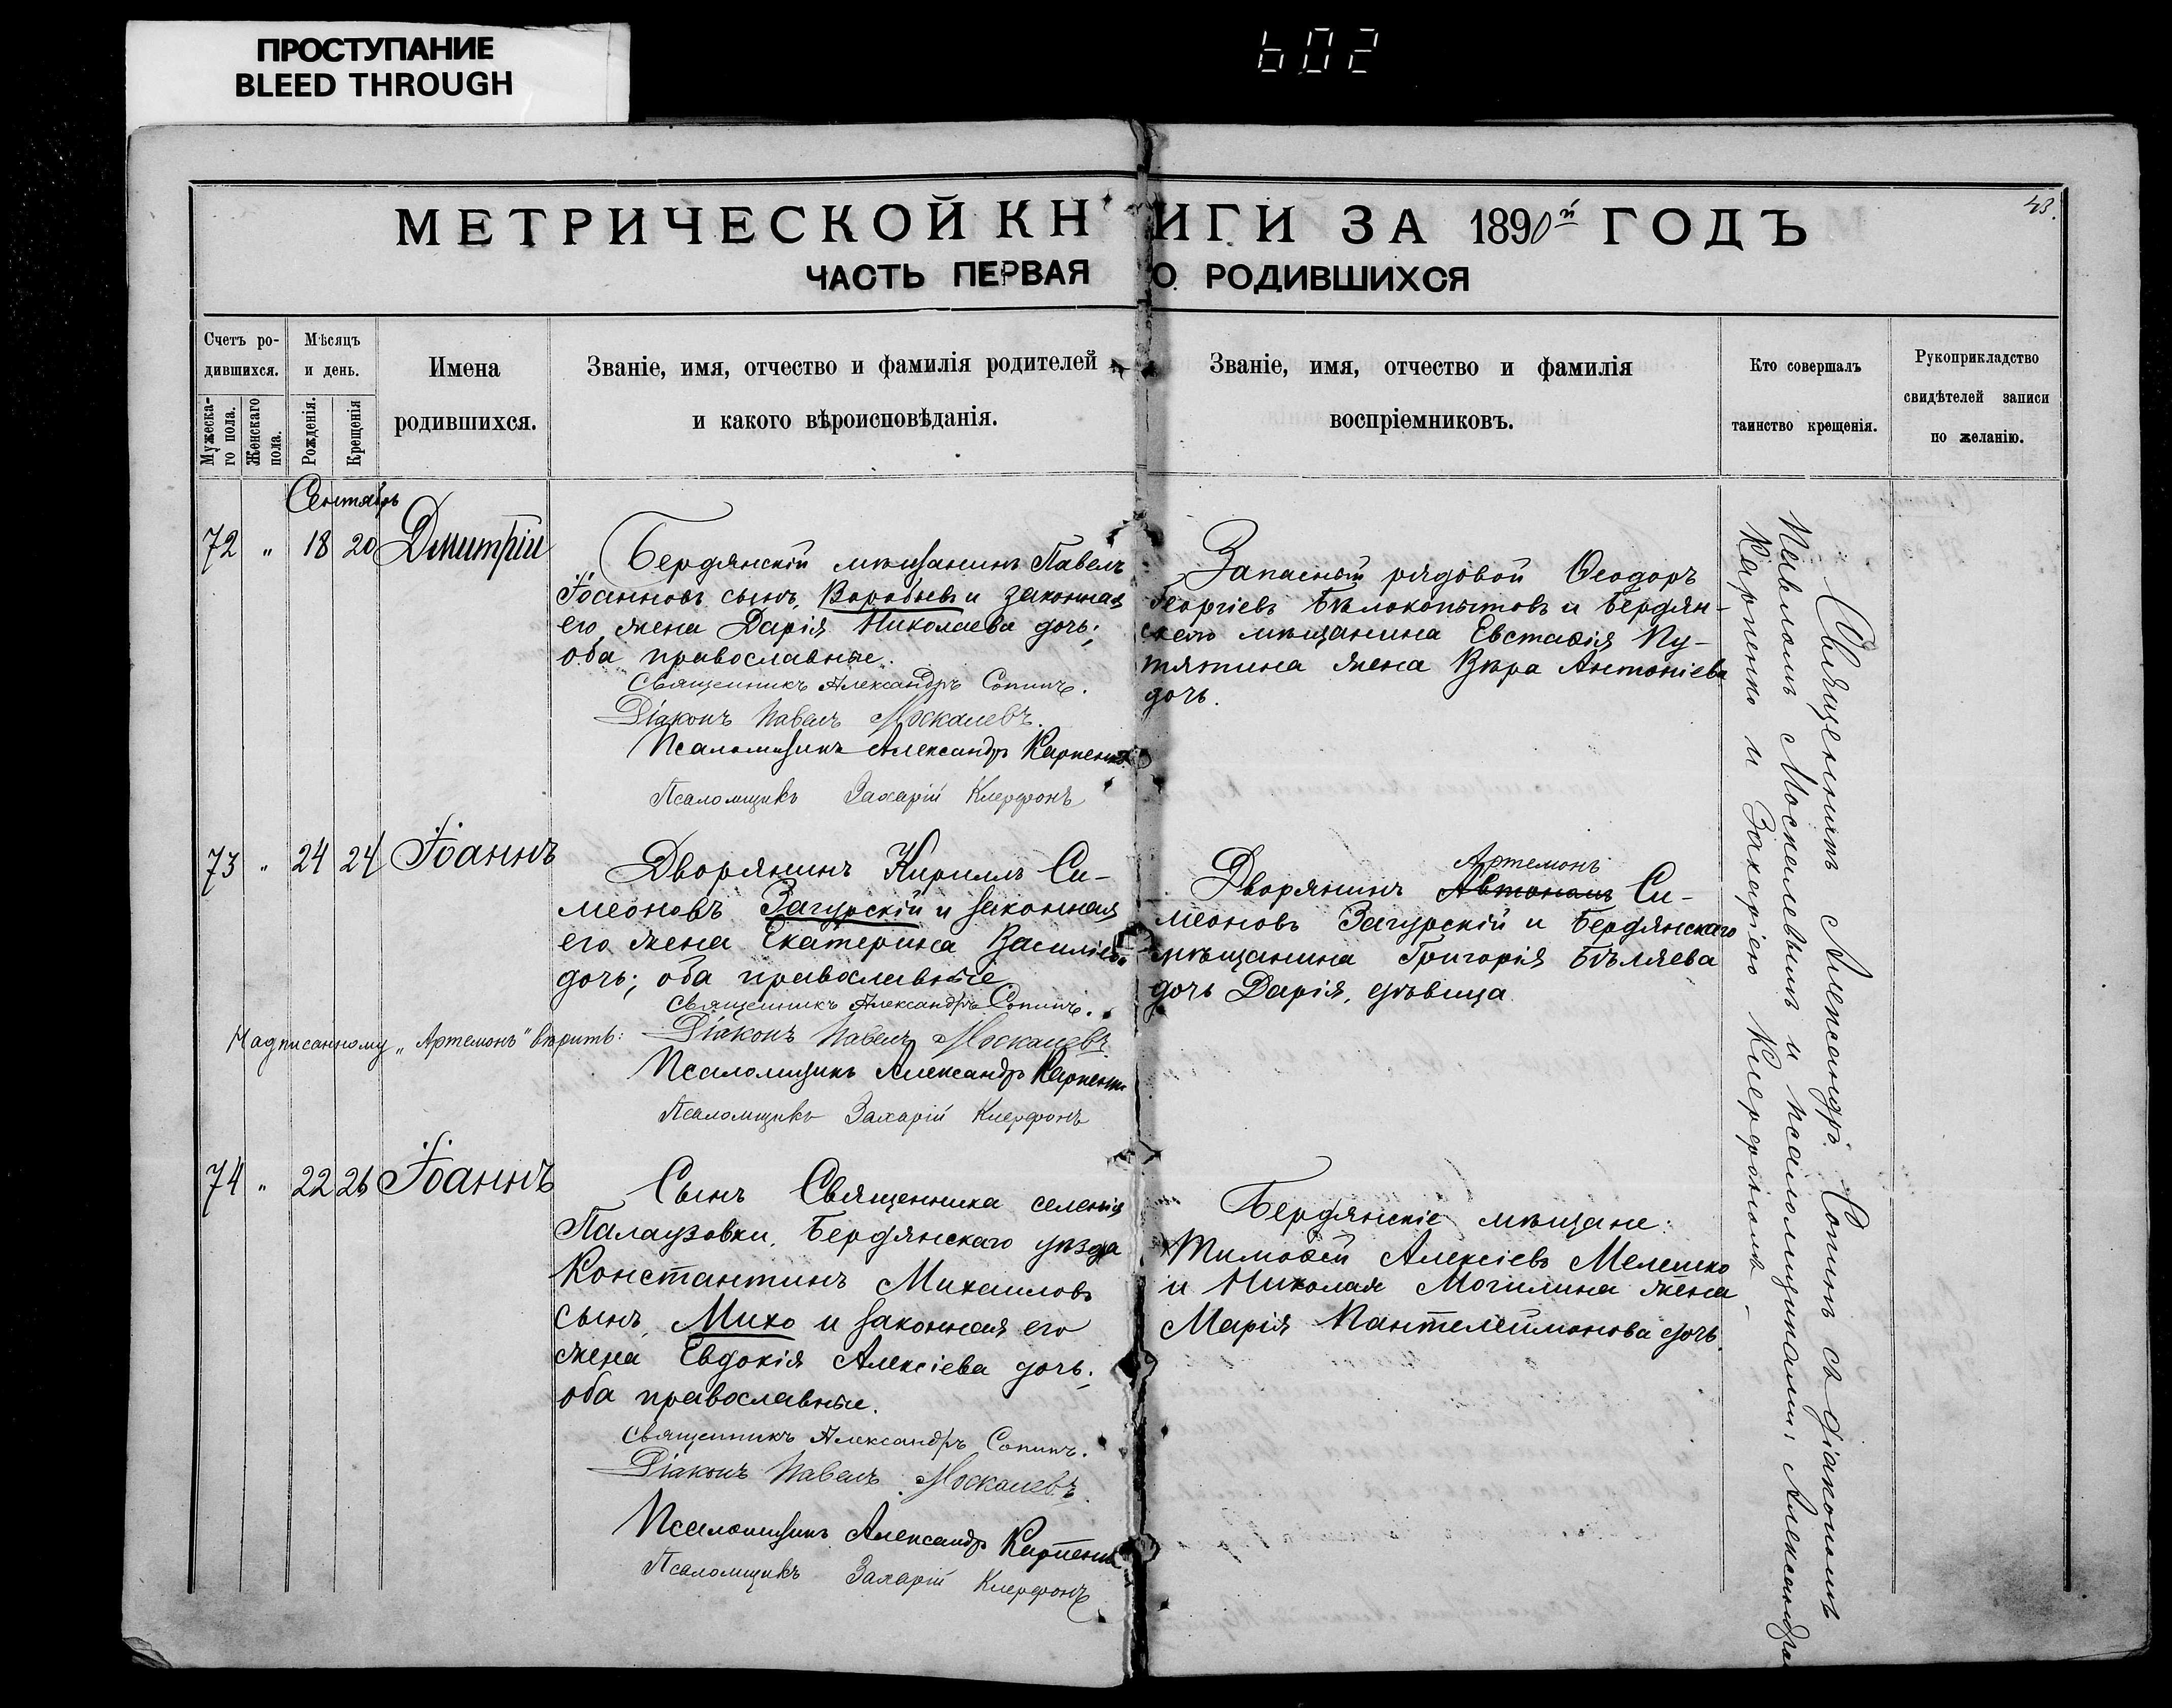 ПРОСТУПАНИЕ
BLEED THROUGH
602
43.
МЕТРИЧЕСКОЙ КНИГИ ЗА 1890й ГОДЪ
ЧАСТЬ ПЕРВАЯ О РОДИВШИХСЯ
Счетъ ро-
дившихся.
Мужеска-
го пола.
Женскаго
пола.
Мѣсяцъ
и день.
Рожденія.
Крещенія
Имена
родившихся.
Званіе, имя, отчество и фамилія родителей
и какого вѣроисповѣданія.
Званіе, имя, отчество и фамилія
воспріемниковъ.
Кто совершалъ
таинство крещенія.
Рукоприкладство
свидѣтелей записи
по желанію.
Сентябрь
72 " 18 20 Дмитрій
Бердянскій мѣщанинъ Павелъ
Іоанновъ сынъ, Воробьевъ и законная
его жена Дарія Николаева дочь;
оба православные.
Священникъ Александръ Сопинъ.
Діаконъ Павелъ Москалевъ.
Псаломщикъ Александръ Карпенко
Псаломщикъ Захарій Клерфонъ
Запасный рядовой Ѳеодоръ
Георгіевъ Бѣлокопытовъ и Бердян-
скаго мѣщанина Евстафія Пу-
тятина жена Вѣра Антоніева
дочь.
73 " 24 24 Іоаннъ
Дворянинъ Кириллъ Си-
меоновъ Загурскій и законная
его жена Екатерина Василіева
дочь; оба православные
Священникъ Александръ Сопинъ.
Надписанному „Артемонъ" вѣрить:
Діаконъ Павелъ Москалевъ
Псаломщикъ Александръ Карпенко
Псаломщикъ Захарій Клерфонъ
Артемонъ
Дворянинъ Автономъ Си-
меоновъ Загурскій и Бердянскаго
мѣщанина Григорія Бѣляева
дочь Дарія, дѣвица
74 " 22 26 Іоаннъ
Сынъ Священника селенія
Палаузовки, Бердянскаго уѣзда
Константинъ Михаиловъ
сынъ, Михо и законная его
жена Евдокія Алексіева дочь;
оба православные.
Священникъ Александръ Сопинъ.
Діаконъ Павелъ Москалевъ
Псаломщикъ Александръ Карпенко
Псаломщикъ Захарій Клерфонъ
Бердянскіе мѣщане:
Тимоѳей Алексіевъ Мелешко
и Николая Могилина жена
Марія Пантелеймонова дочь.
Священникъ Александръ Сопинъ съ діакономъ
Павломъ Москалевымъ и псаломщиками: Александромъ
Карпенко и Захаріею Клерфономъ